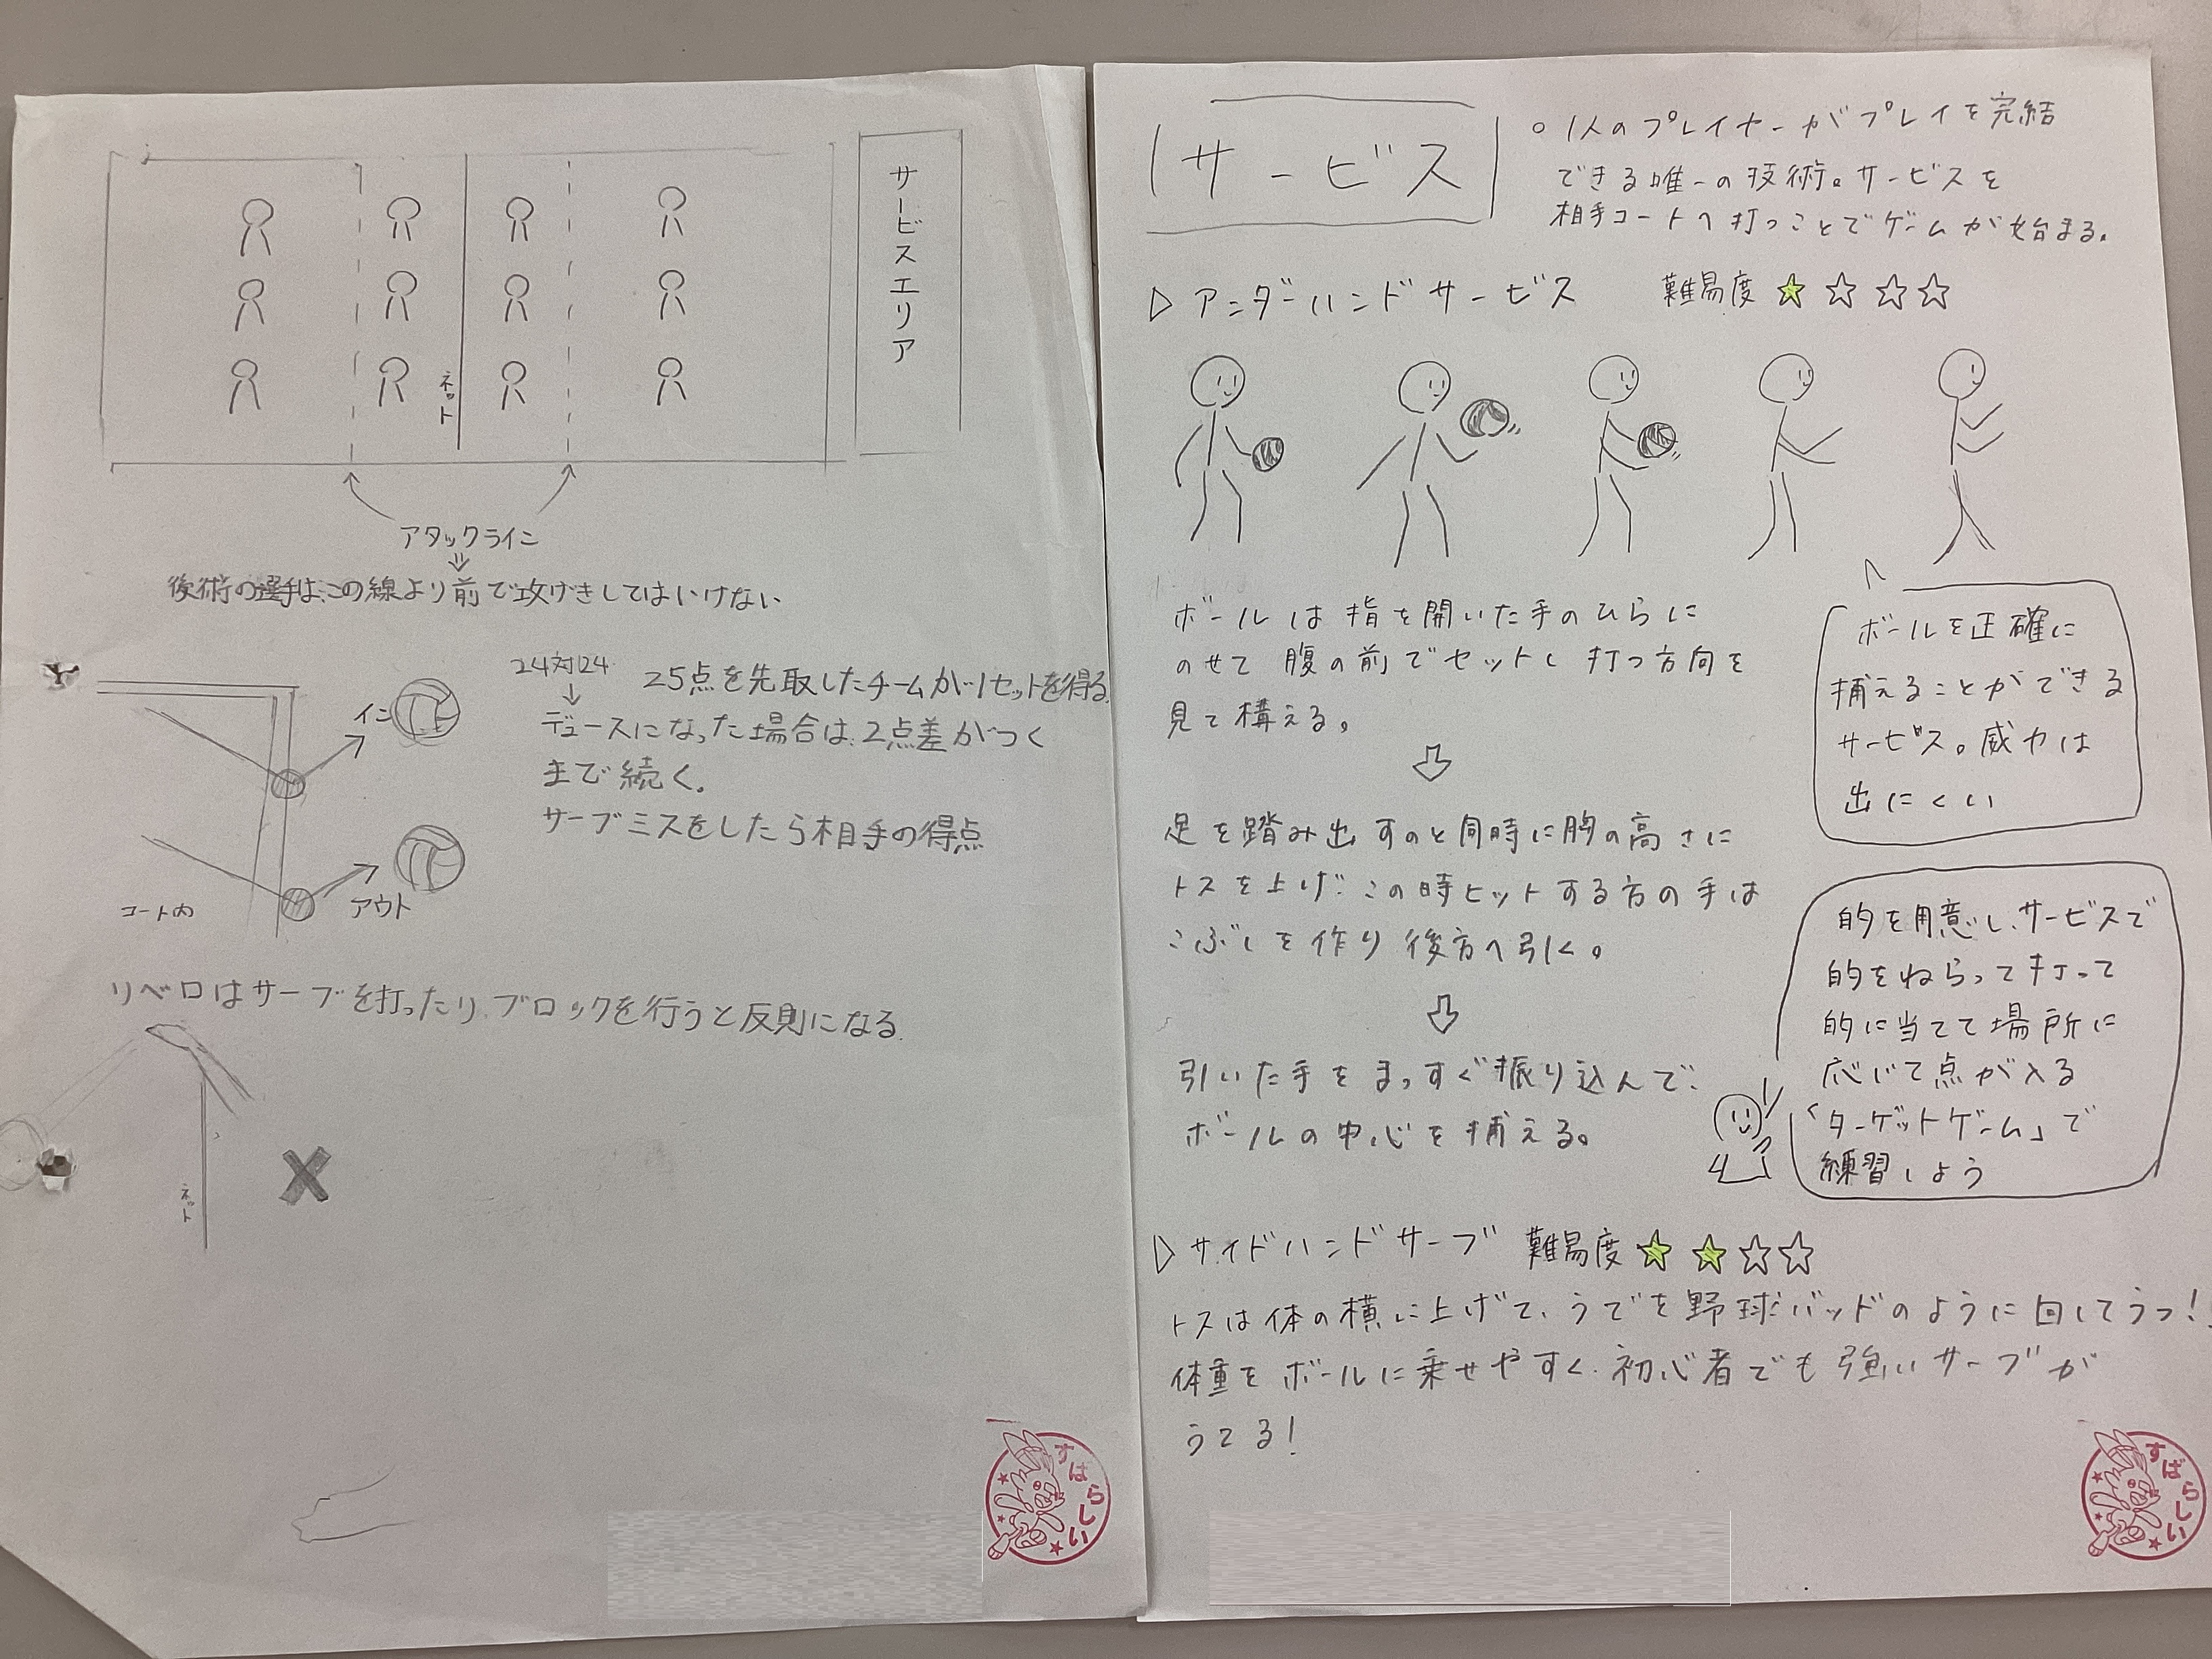 サービスエリア
ネット
アタックライン
⇓
後術の選手は、この線より前で攻げきしてはいけない
イン
アウト
コート内
24対24
↓
25点を先取したチームが1セットを得る
デュースになった場合は、2点差がつく
まで続く。
サーブミスをしたら相手の得点
リベロはサーブを打ったり、ブロックを行うと反則になる
ネット
すばらしい
サービス
○1人のプレイヤーがプレイを完結
できる唯一の技術。サービスを
相手コートへ打つことでゲームが始まる。
▷アンダーハンドサービス 難易度★☆☆☆
ボールは指を開いた手のひらに
のせて腹の前でセットし打つ方向を
見て構える。
⇩
足を踏み出すのと同時に胸の高さに
トスを上げ、この時ヒットする方の手は
こぶしを作り後方へ引く。
⇩
引いた手をまっすぐ振り込んで、
ボールの中心を捕える。
ボールを正確に
捕えることができる
サービス。威力は
出にくい
的を用意し、サービスで
的をねらって打って
的に当てて場所に
応じて点が入る
「ターゲットゲーム」で
練習しよう
▷サイドハンドサーブ 難易度★★☆☆
トスは体の横に上げて、うでを野球バッドのように回してうつ!
体重をボールに乗せやすく、初心者でも強いサーブが
うてる!
すばらしい